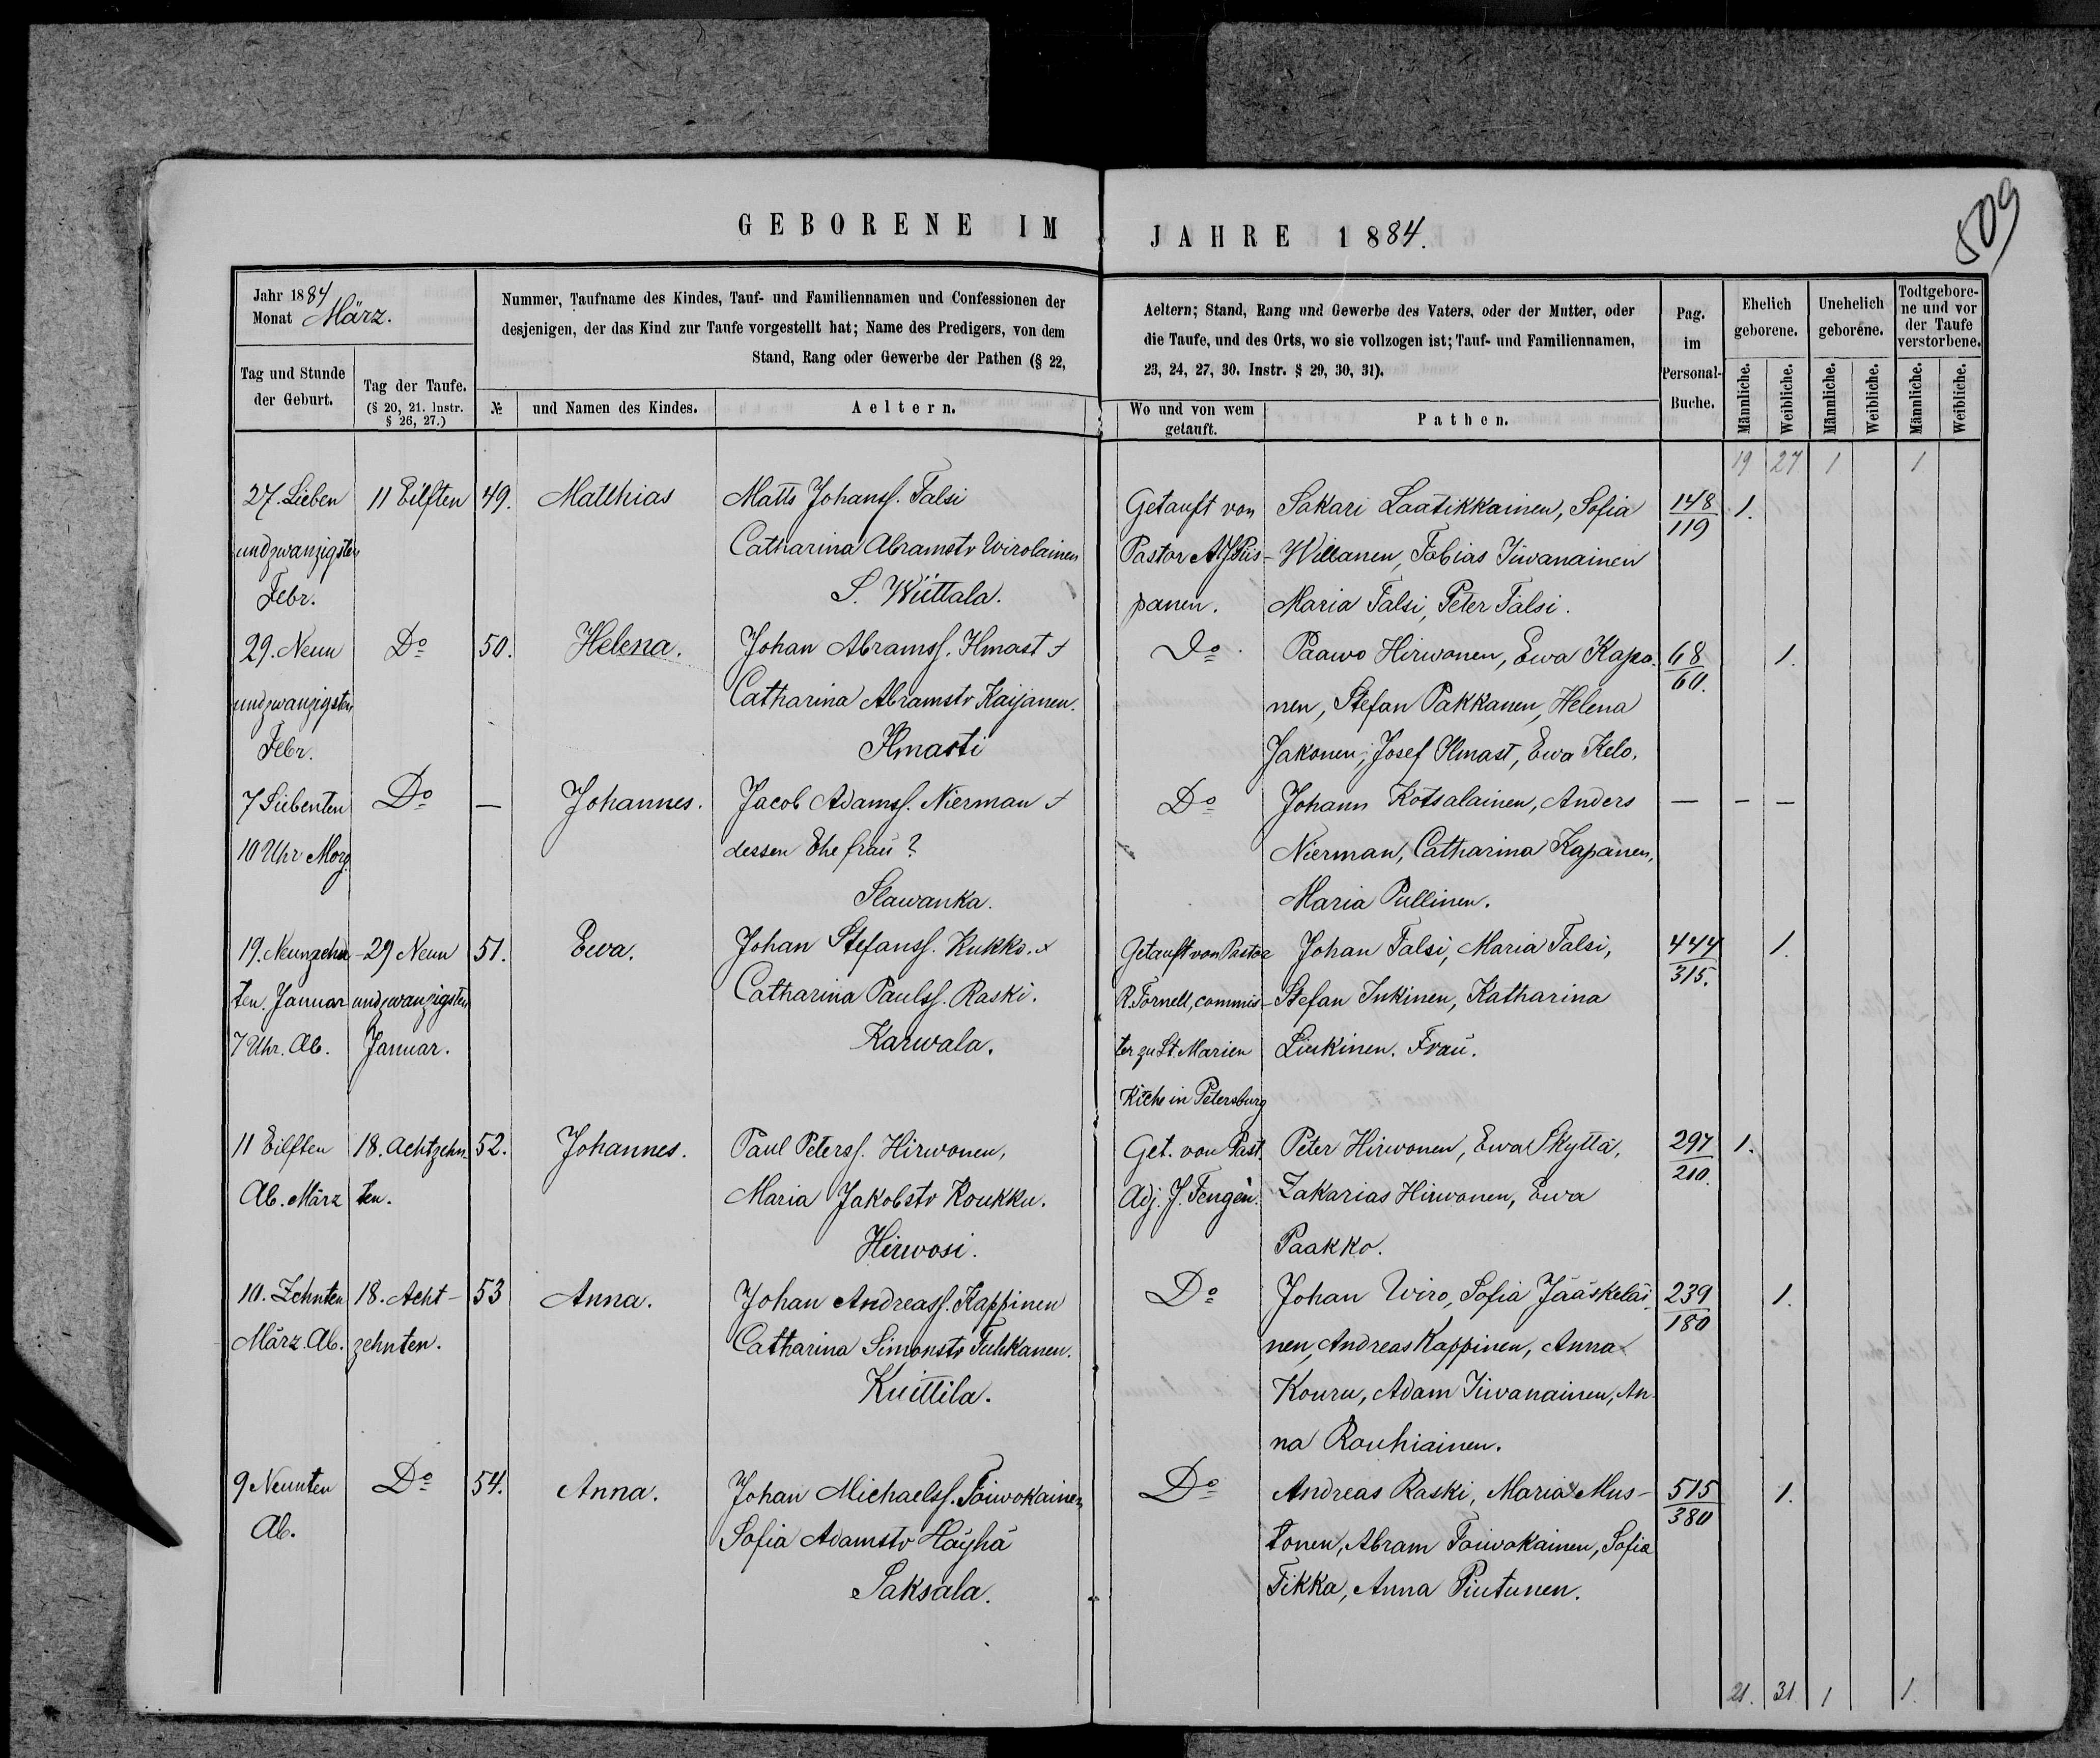 509
GEBORENE IM JAHRE 1884.
Jahr 1884
Monat März.
Nummer, Taufname des Kindes, Tauf- und Familiennamen und Confessionen der
desjenigen, der das Kind zur Taufe vorgestellt hat; Name des Predigers, von dem
Stand, Rang oder Gewerbe der Pathen (§ 22,
Aeltern; Stand, Rang und Gewerbe des Vaters, oder der Mutter, oder
die Taufe, und des Orts, wo sie vollzogen ist; Tauf- und Familiennamen,
23, 24, 27, 30. Instr. § 29, 30, 31).
Pag.
im
Personal-
Buche.
Ehelich
geborene.
Unehelich
geborene.
Todtgebore-
ne und vor
der Taufe
verstorbene.
Tag und Stunde
der Geburt.
Tag der Taufe.
(§ 20, 21. Instr.
§ 26, 27.)
№
und Namen des Kindes.
Aeltern.
Wo und von wem
getauft.
Pathen.
Männliche. Weibliche. Männliche. Weibliche. Männliche. Weibliche.
19 27 1 1
27. Sieben 11 Eilften 49. Matthias Matts Johanss. Talsi Getauft von Sakari Laatikkainen, Sofia 148 1.
undzwanzigsten Catharina Abramstr Wirolainen Pastor A. J. Piis- Willanen, Tobias Iiwanainen 119
Febr. S. Wiittala. panen. Maria Talsi, Peter Talsi.
29. Neun Do 50. Helena. Johan Abramss. Ilmast + Do Paawo Hirwonen, Ewa Kapa- 68 1.
undzwanzigsten Catharina Abramstr Kaijanen. nen, Stefan Pakkanen, Helena 60.
Febr. Ilmasti Jakonen, Josef Ilmast, Ewa Kelo.
7 Siebenten Do — Johannes. Jacob Adamss. Nierman + Do Johann Kotsalainen, Anders — — —
10 Uhr Morg. dessen Ehefrau? Nierman, Catharina Kapanen,
Slawanka. Maria Pullinen.
19. Neunzehn- 29 Neun 51. Ewa. Johan Stefanss. Kukko. + Getauft von Pastor Johan Talsi, Maria Talsi, 444 1.
ten. Januar undzwanzigsten Catharina Paulss. Raski. R. Tornell, commis- Stefan Inkinen, Katharina 315.
7 Uhr. Ab. Januar. Karwala. ter zu St. Marien Liukinen. Frau.
Kiche in Petersburg
11 Eilften 18. Achtzehn- 52. Johannes. Paul Peterss. Hirwonen, Get. von Past. Peter Hirwonen, Ewa Skyttä, 297 1.
Ab. März ten. Maria Jakobstr Koukku. Adj. J. Fengén. Zakarias Hirwonen, Ewa 210.
Hirwosi. Paakko.
10. Zehnten 18. Acht- 53 Anna. Johan Andreass. Kappinen Do Johan Wiro, Sofia Jääskeläi- 239 1.
März. Ab. zehnten. Catharina Simonstr Tuhkanen. nen, Andreas Kappinen, Anna 180
Kuittila. Kouru, Adam Iiwanainen, An-
na Rouhiainen.
9 Neunten Do 54. Anna. Johan Michaelss. Toiwokainen Do Andreas Raski, Maria Mus- 515 1.
Ab. Sofia Adamstr Häyhä tonen, Abram Toiwokainen, Sofia 380
Saksala. Tikka, Anna Piutunen.
21. 31 1 1.